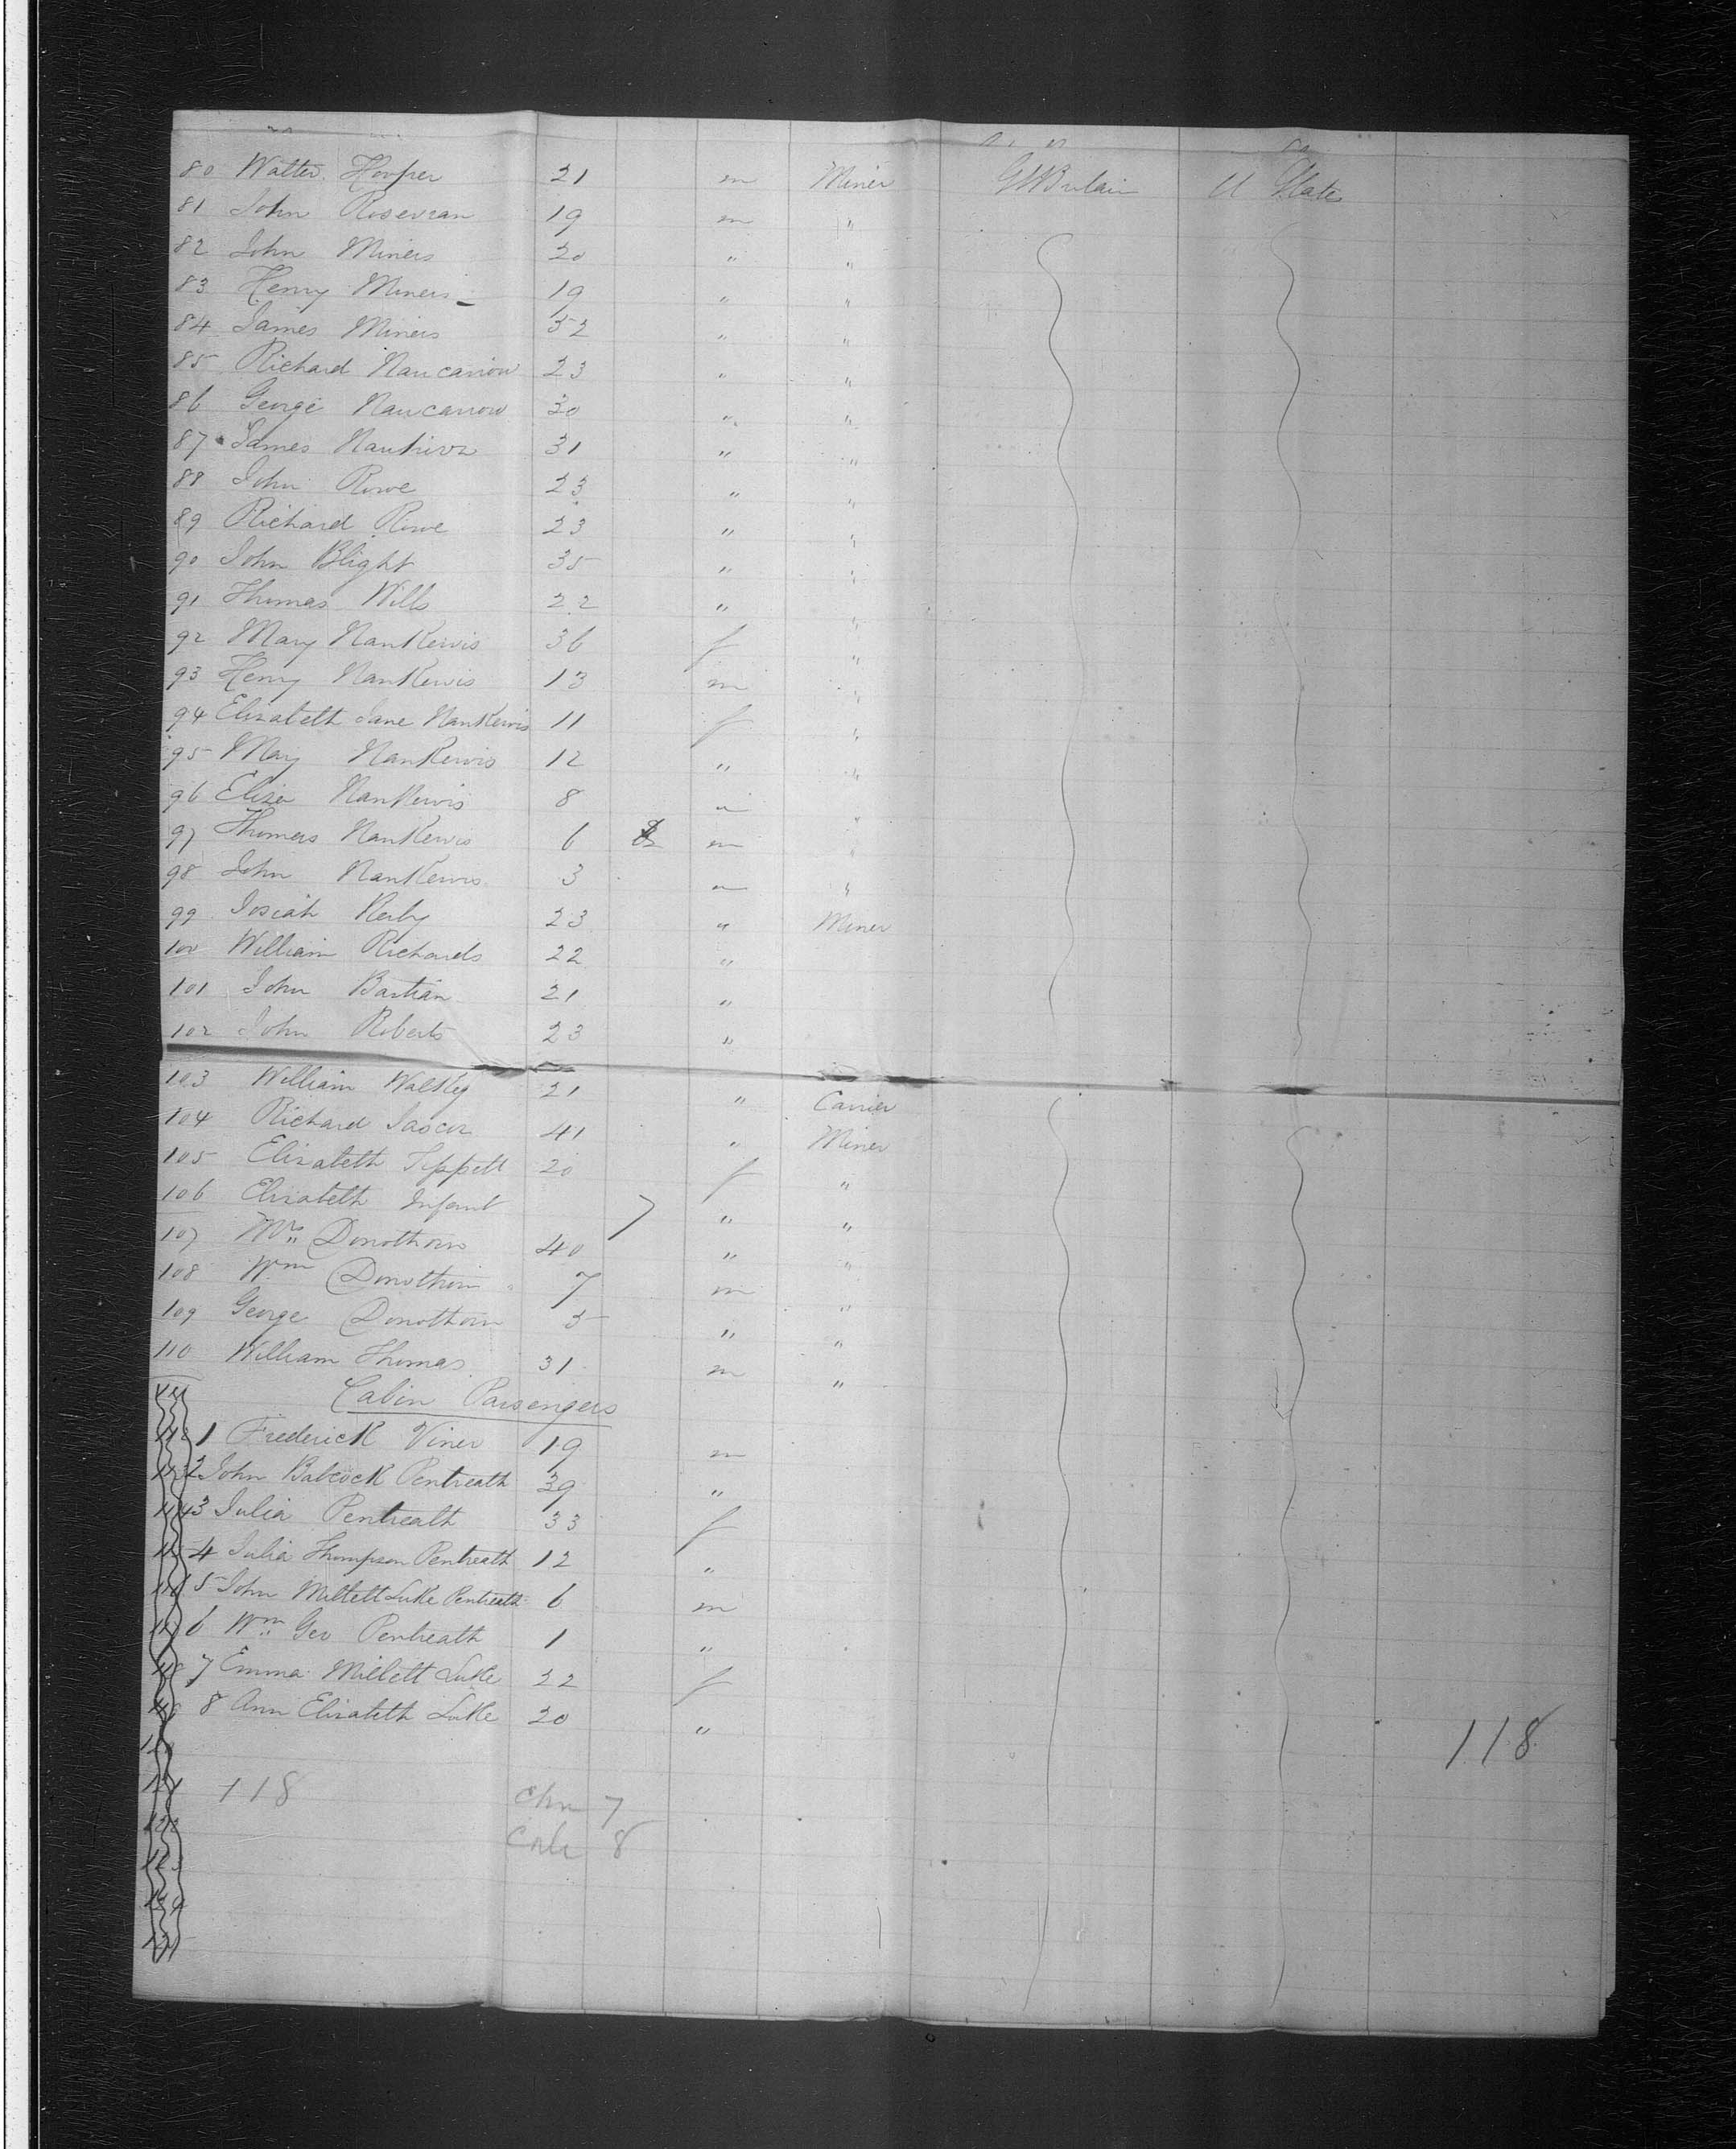 80 Walter Hooper 21 m Miner Gt Britain U States
81 John Rosevean 19 m "
82 John Miners 20 " "
83 Henry Miners 19 " "
84 James Miners 32 " "
85 Richard Nancarrow 23 " "
86 George Nancarrow 30 " "
87 James 31 " "
88 John Rowe 23 " "
89 Richard Rowe 23 " "
90 John Blight 35 " "
91 Thomas Wills 22 " "
92 Mary NanKervis 36 f "
93 Henry NanKervis 13 m "
94 Elizabeth Jane NanKervis 11 f "
95 Mary NanKervis 12 " "
96 Eliza NanKervis 8 "
97 Thomas NanKervis 6 m "
98 John NanKervis 3 "
99 Josiah Kerby 23 " Miner
100 William Richards 22 "
101 John Bartian 21 "
102 John Roberts 23 "
103 William 21 " Carrier
104 Richard 41 " Miner
105 Elizabeth Tippett 20 f "
106 Elizabeth Infant 7 " "
107 Mrs Donothorn 40 " "
108 Wm Donothorn 7 m "
109 George Donothorn 5 " "
110 William Thomas 31 m "
111 Cabin Passengers
112 1 Frederick Viner 19 m
113 2 John Babcock Pentreath 39 "
114 3 Julia Pentreath 33 f
115 4 Julia Thompson Pentreath 12 "
116 5 John Millett Luke Pentreath 6 m
117 6 Wm Geo Pentreath 1 "
118 7 Emma Millett Luke 22 f
119 8 Ann Elizabeth Luke 20 "
118
120
121 118 Chn 7
122 8
123
124
125